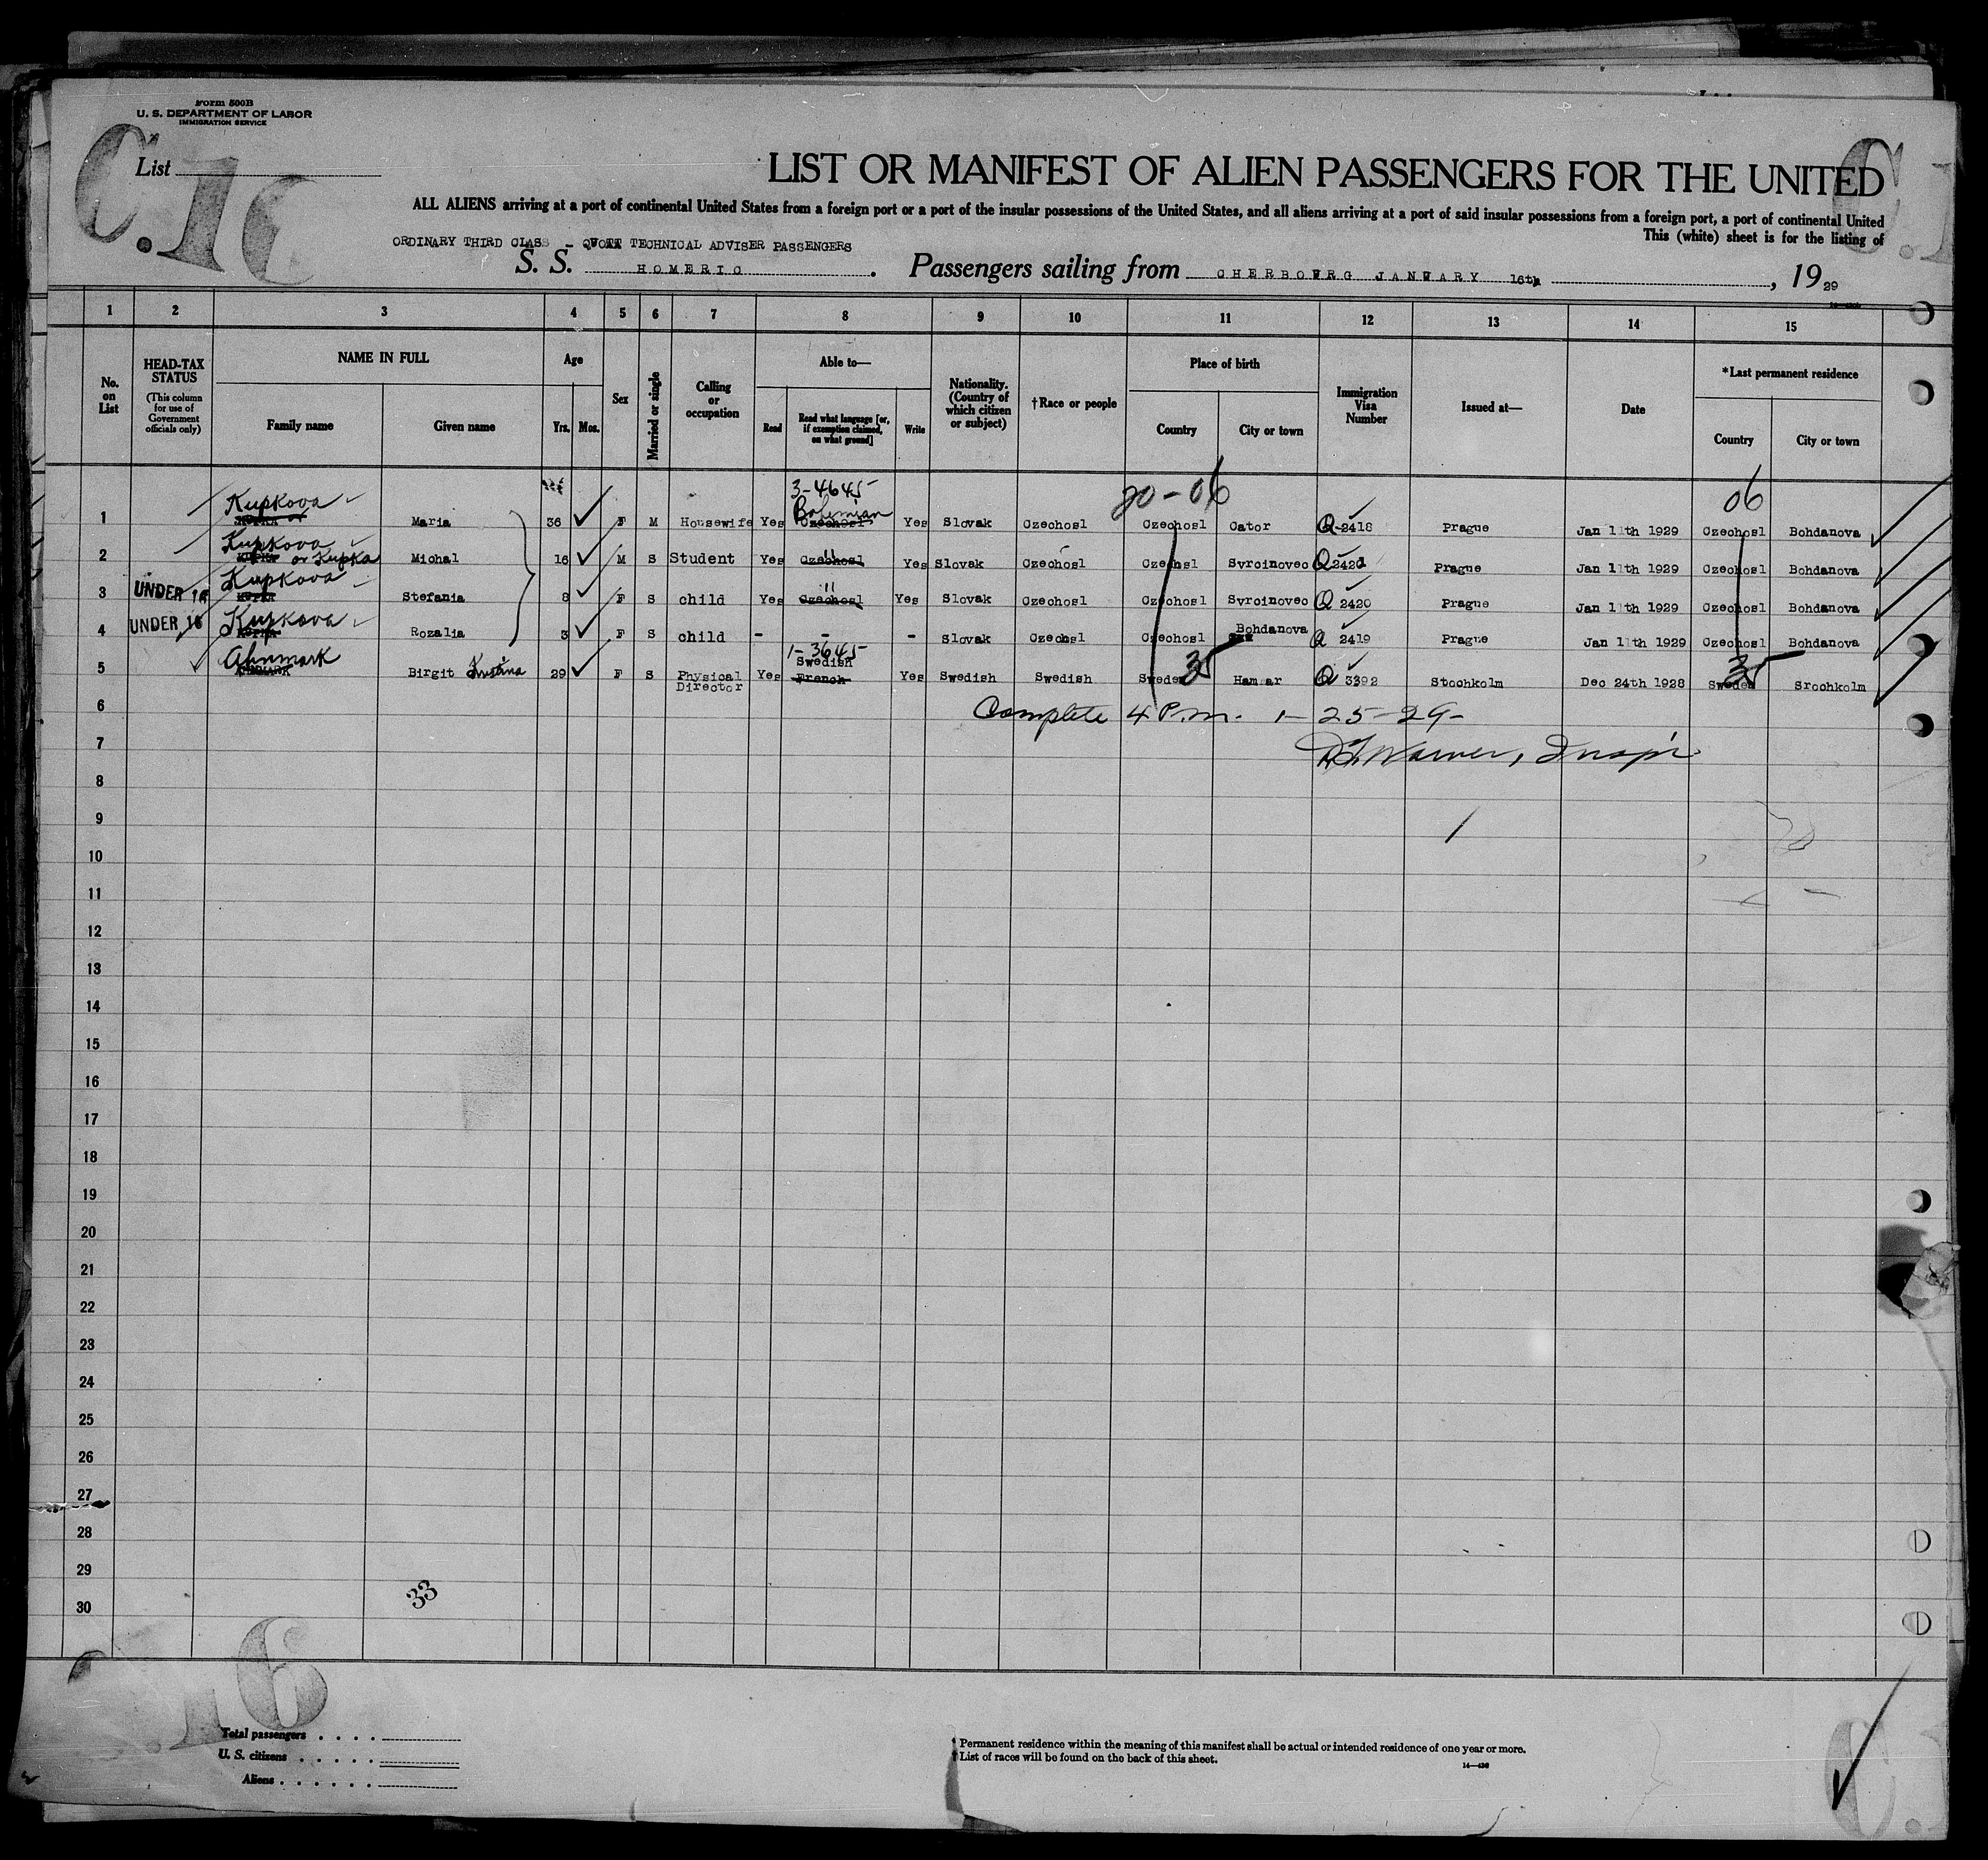 Form 500B
U. S. DEPARTMENT OF LABOR
IMMIGRATION SERVICE
List
LIST OR MANIFEST OF ALIEN PASSENGERS FOR THE UNITED
ALL ALIENS arriving at a port of continental United States from a foreign port or a port of the insular possessions of the United States, and all aliens arriving at a port of said insular possessions from a foreign port, a port of continental United
This (white) sheet is for the listing of
ORDINARY THIRD CLASS - TECHNICAL ADVISER PASSENGERS
S. S. HOMERIC. Passengers sailing from CHERBOURG JANUARY 16th, 1929
1 2 3 4 5 6 7 8 9 10 11 12 13 14 15
No. on List
HEAD-TAX STATUS (This column for use of Government officials only)
NAME IN FULL Family name Given name
Age Yrs. Mos.
Sex
Married or single
Calling or occupation
Able to— Read Read what language [or, if exemption claimed, on what ground] Write
Nationality. (Country of which citizen or subject)
†Race or people
Place of birth Country City or town
Immigration Visa Number
Issued at—
Date
*Last permanent residence Country City or town
3-4645 20-06 06
1 Kupkova or KUPKA Maria 36 F M Housewife Yes Bohemian Czechosl Yes Slovak Czechosl Czechosl Cator Q-2418 Prague Jan 11th 1929 Czechosl Bohdanova
2 Kupkova KUPKA or Kupka Michal 16 M S Student Yes " Czechosl Yes Slovak Czechosl Czechsl Svroinovec Q 2421 Prague Jan 11th 1929 Czechosl Bohdanova
3 UNDER 16 Kupkova KUPKA Stefania 8 F S child Yes " Czechosl Yes Slovak Czechosl Czechosl Svroinovec Q 2420 Prague Jan 11th 1929 Czechosl Bohdanova
4 UNDER 16 Kupkova KUPKA Rozalia 3 F S child - - - Slovak Czechsl Czechosl Bohdanova Q 2419 Prague Jan 11th 1929 Czechosl Bohdanova
1-3645 35 35
5 Ahnmark Birgit Kristina 29 F S Physical Director Yes Swedish French Yes Swedish Swedish Sweden Hammar Q 3392 Stochkolm Dec 24th 1928 Sweden Srochkolm
6 Complete 4 P.m. 1-25-29-
7 Warner, Insp'r
8
9
10
11
12
13
14
15
16
17
18
19
20
21
22
23
24
25
26
27
28
29
30
33
Total passengers
U. S. citizens
Aliens
* Permanent residence within the meaning of this manifest shall be actual or intended residence of one year or more.
† List of races will be found on the back of this sheet.
14—430